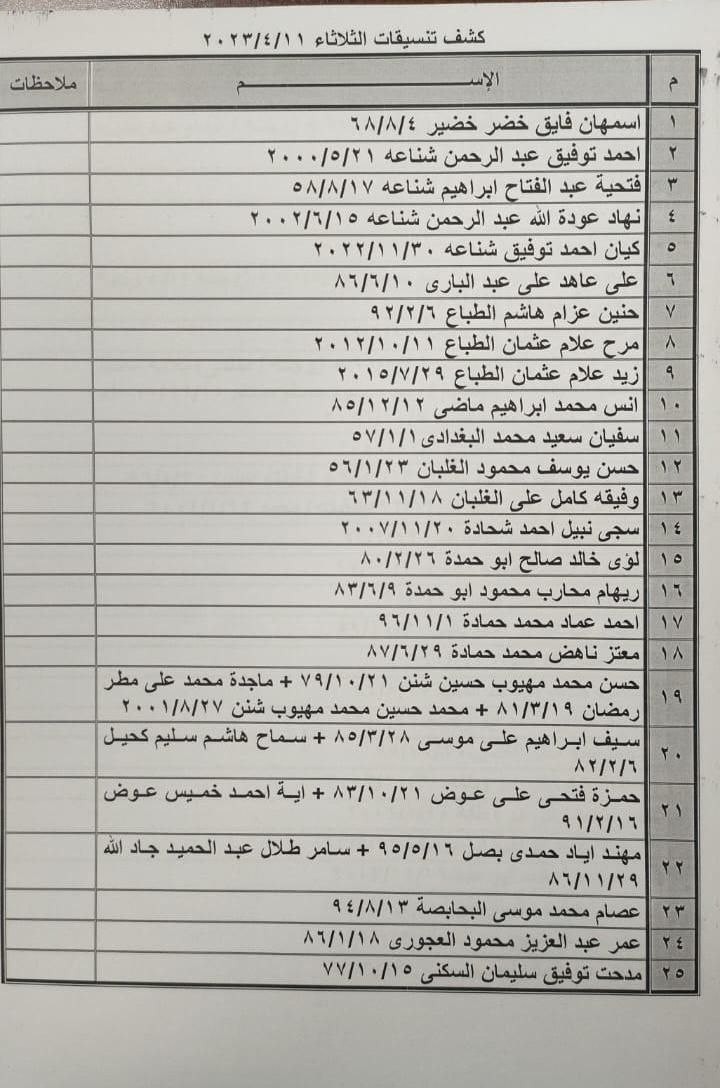 كشف تنسيقات الثلاثاء ٢٠٢٣/٤/١١
م الإســـــــــم ملاحظات
١ اسمهان فايق خضر خضير ٦٨/٨/٤
٢ احمد توفيق عبد الرحمن شناعه ٢٠٠٠/٥/٢١
٣ فتحية عبد الفتاح ابراهيم شناعه ٥٨/٨/١٧
٤ نهاد عودة الله عبد الرحمن شناعه ٢٠٠٢/٦/١٥
٥ كيان احمد توفيق شناعه ٢٠٢٢/١١/٣٠
٦ على عاهد على عبد البارى ٨٦/٦/١٠
٧ حنين عزام هاشم الطباع ٩٢/٢/٦
٨ مرح علام عثمان الطباع ٢٠١٢/١٠/١١
٩ زيد علام عثمان الطباع ٢٠١٥/٧/٢٩
١٠ انس محمد ابراهيم ماضى ٨٥/١٢/١٢
١١ سفيان سعيد محمد البغدادى ٥٧/١/١
١٢ حسن يوسف محمود الغلبان ٥٦/١/٢٣
١٣ وفيقه كامل على الغلبان ٦٣/١١/١٨
١٤ سجى نبيل احمد شحادة ٢٠٠٧/١١/٢٠
١٥ لؤى خالد صالح ابو حمدة ٨٠/٢/٢٦
١٦ ريهام محارب محمود ابو حمدة ٨٣/٦/٩
١٧ احمد عماد محمد حمادة ٩٦/١١/١
١٨ معتز ناهض محمد حمادة ٨٧/٦/٢٩
١٩ حسن محمد مهيوب حسين شنن ٧٩/١٠/٢١ + ماجدة محمد على مطر
رمضان ٨١/٣/١٩ + محمد حسين محمد مهيوب شنن ٢٠٠١/٨/٢٧
٢٠ سيف ابراهيم على موسى ٨٥/٣/٢٨ + سماح هاشم سليم كحيل
٨٢/٢/٦
٢١ حمزة فتحى على عوض ٨٣/١٠/٢١ + اية احمد خميس عوض
٩١/٢/١٦
٢٢ مهند اياد حمدى بصل ٩٥/٥/١٦ + سامر طلال عبد الحميد جاد الله
٨٦/١١/٢٩
٢٣ عصام محمد موسى البحابصة ٩٤/٨/١٣
٢٤ عمر عبد العزيز محمود العجورى ٨٦/١/١٨
٢٥ مدحت توفيق سليمان السكنى ٧٧/١٠/١٥